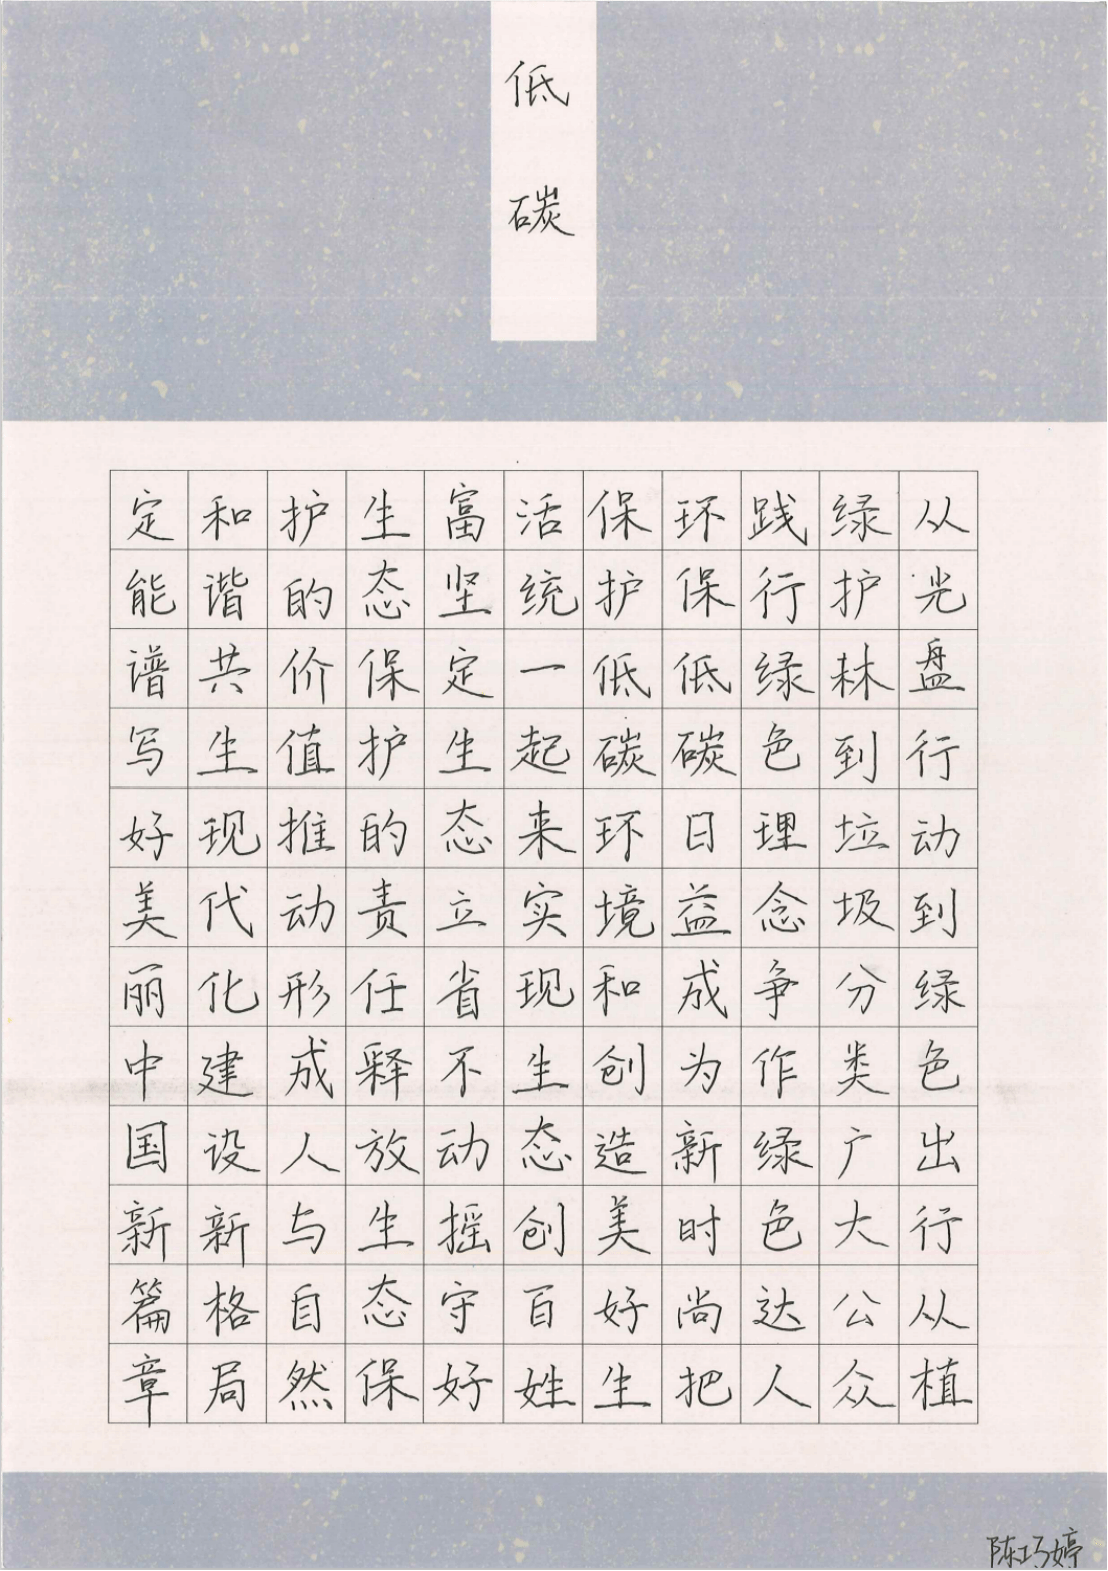 低碳
从光盘行动到绿色出行从植
绿护林到垃圾分类广大公众
践行绿色理念争作绿色达人
环保低碳日益成为新时尚把
保护低碳环境和创造美好生
活统一起来实现生态创百姓
富坚定生态立省不动摇守好
生态保护的责任释放生态保
护的价值推动形成人与自然
和谐共生现代化建设新格局
定能谱写好美丽中国新篇章
陈巧婷